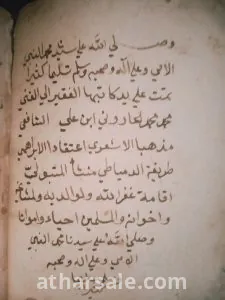 وصلى الله على سيدنا محمد النبي
الامي وعلى آله وصحبه وسلم تسليما كثيرا
تمت على يد كاتبها الفقير الى الغني
محمد محمد بن علي الشافعي
مذهبا الاشعري اعتقادا الابراهيمي
طريقة الدمياطي منشأ المتبولي
اقامة غفر الله له ولوالديه ولمشايخه
واخوانه والمسلمين احياء وامواتا
وصلى الله على سيدنا محمد النبي
الامي وعلى آله وصحبه
atharsale.com